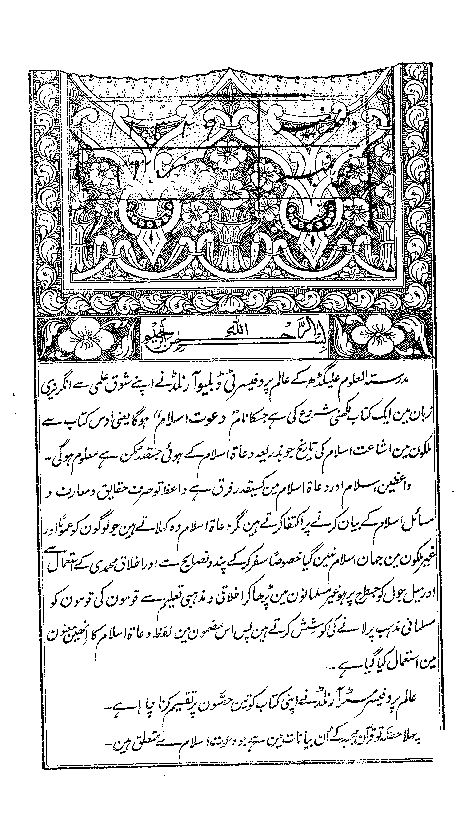 بسم اللہ الرحمن الرحیم
مدرسۃ العلوم علیگڈھ کے عالم پروفیسر ٹی ڈبلیو آرنلڈ نے اپنے شوق علمی سے انگریزی
زبان مین ایک کتاب لکھنی شروع کی ہے جسکا نام "دعوت اسلام" ہوگا یعنی اوس کتاب سے
ملکون مین اشاعت اسلام کی تاریخ جو بذریعہ دعاۃ اسلام کے ہوئی جسقدر ممکن ہے معلوم ہوگی۔
واعظین اسلام اور دعاۃ اسلام مین کسیقدر فرق ہے واعظ تو صرف حقایق و معارف و
مسائل اسلام کے بیان کرنے پر اکتفا کرتے ہین مگر دعاۃ اسلام وہ کہلاتے ہین جو لوگون کو عموماً اور
غیر ملکون مین جہان اسلام نہین گیا خصوصاً سفر کرکے پند و نصایح سے اور اخلاق محمدی کے استعمال سے
اور میل جول کو جسطرح پر ہو غیر مسلمانون مین بڑھا کر اخلاقی و مذہبی تعلیم سے قومون کی قومون کو
مسلمانی مذہب پر لانے کی کوشش کرتے ہین پس اس مضمون مین لفظ دعاۃ اسلام کا انھین معنون
مین استعمال کیا گیا ہے۔
عالم پروفیسر مسٹر آرنلڈ نے اپنی کتاب کو تین حصّون پر تقسیم کرنا چاہا ہے۔
پہلا حصّہ تو قرآن مجید کے اُن بیانات مین ہے جو دعوت اسلام سے متعلق ہین۔